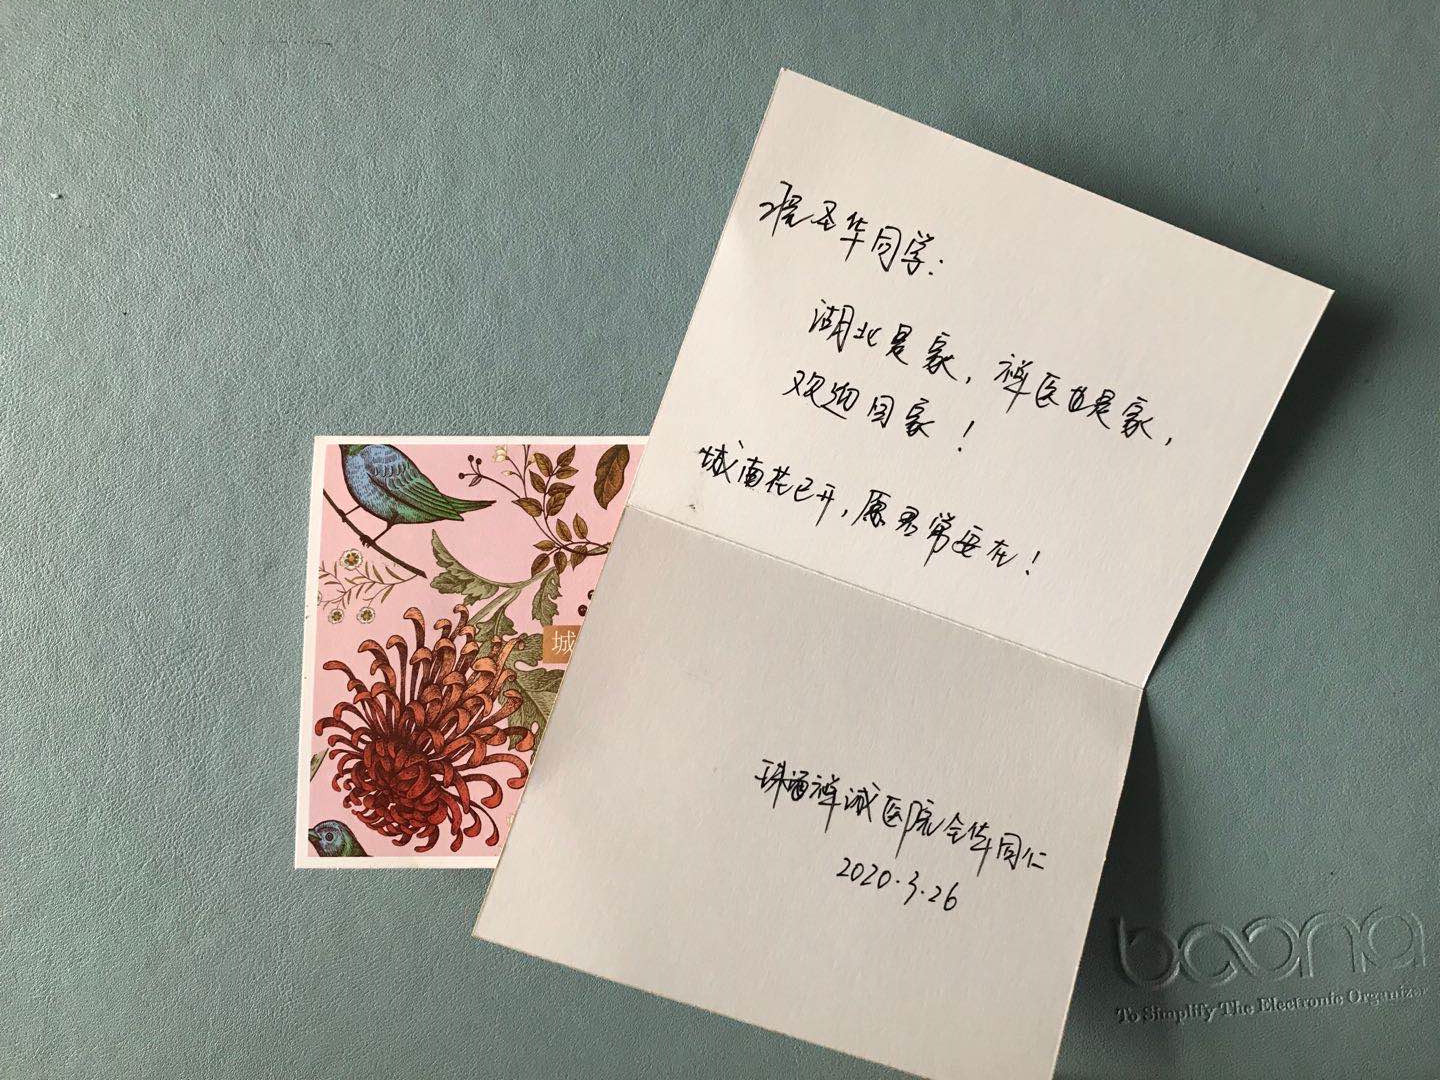 圣华同学:
湖北是家,禅医也是家,
欢迎回家!
城南花已开,愿君常安在!
城
禅诚医院全体同仁
2020.3.26
baona
To Simplify The Electronic Organizer